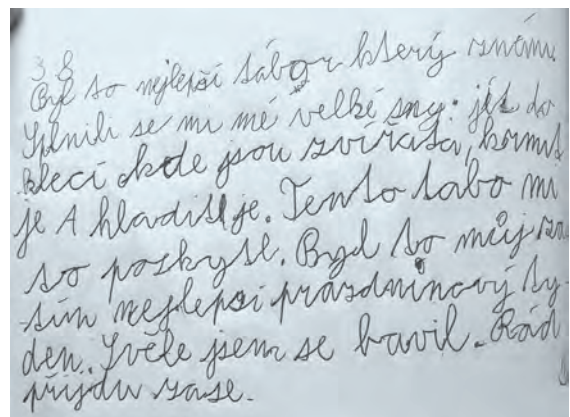 3 8
Byl to nejlepší tábor který známe
Splnili se mi mé velké sny: jít do
klecí kde jsou zvířata, krmit
je A hladit je. Tento tabo mi
to poskytl. Byl to můj za
tím nejlepší prázdninový tý-
den. Skvěle jsem se bavil. Rád
příjdu zase.